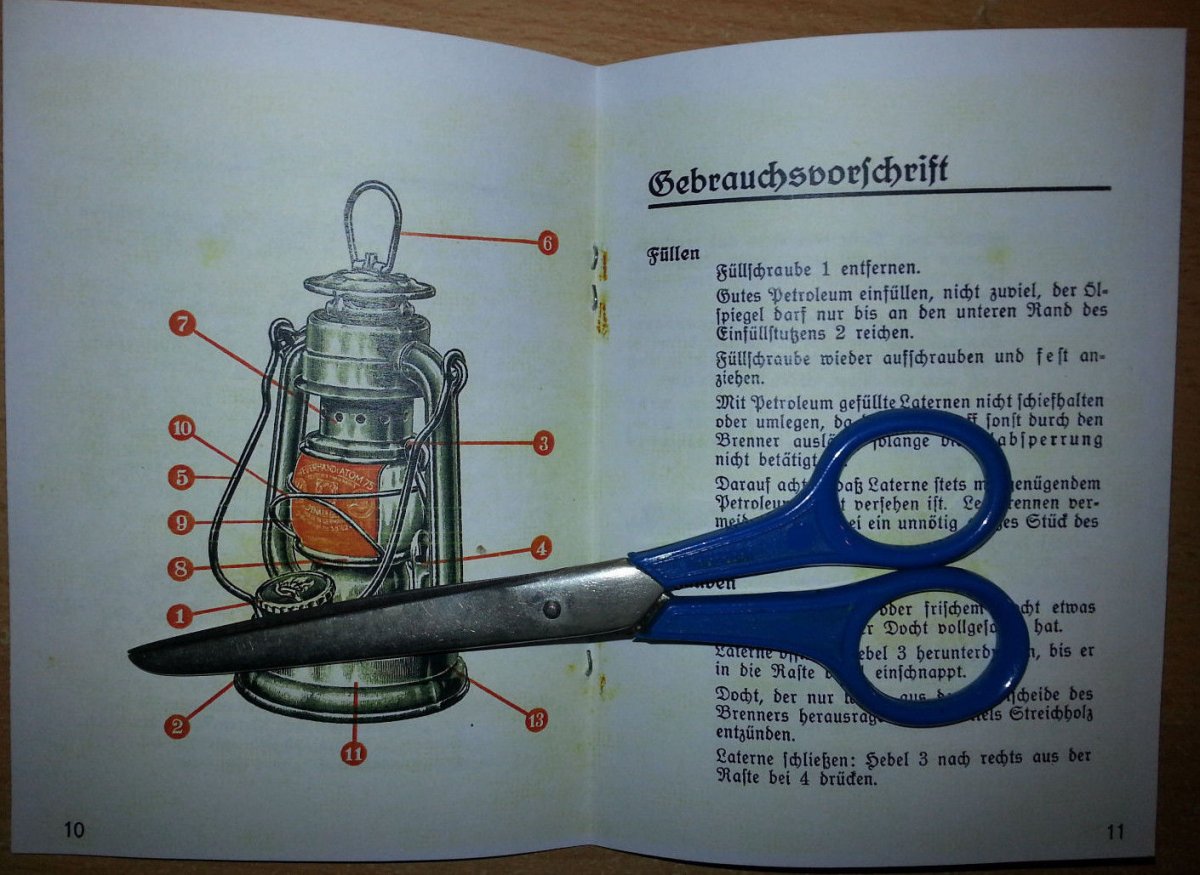 6
7
10
3
5
FEUERHAND-ATOM 75
9
8
4
1
2
11
13
10
Gebrauchsvorschrift
Füllen
Füllschraube 1 entfernen.
Gutes Petroleum einfüllen, nicht zuviel, der Öl-
spiegel darf nur bis an den unteren Rand des
Einfüllstutzens 2 reichen.
Füllschraube wieder aufschrauben und fest an-
ziehen.
Mit Petroleum gefüllte Laternen nicht schiefhalten
oder umlegen, da sonst durch den
Brenner solange absperrung
nicht betätigt
Darauf daß Laterne stets genügendem
versehen ist. ver-
ein unnötig Stück des
oder frischem etwas
Docht hat.
Laterne 3 bis er
in die Raste einschnappt.
Docht, der nur aus des
Brenners Streichholz
entzünden.
Laterne schließen: Hebel 3 nach rechts aus der
Raste bei 4 drücken.
11